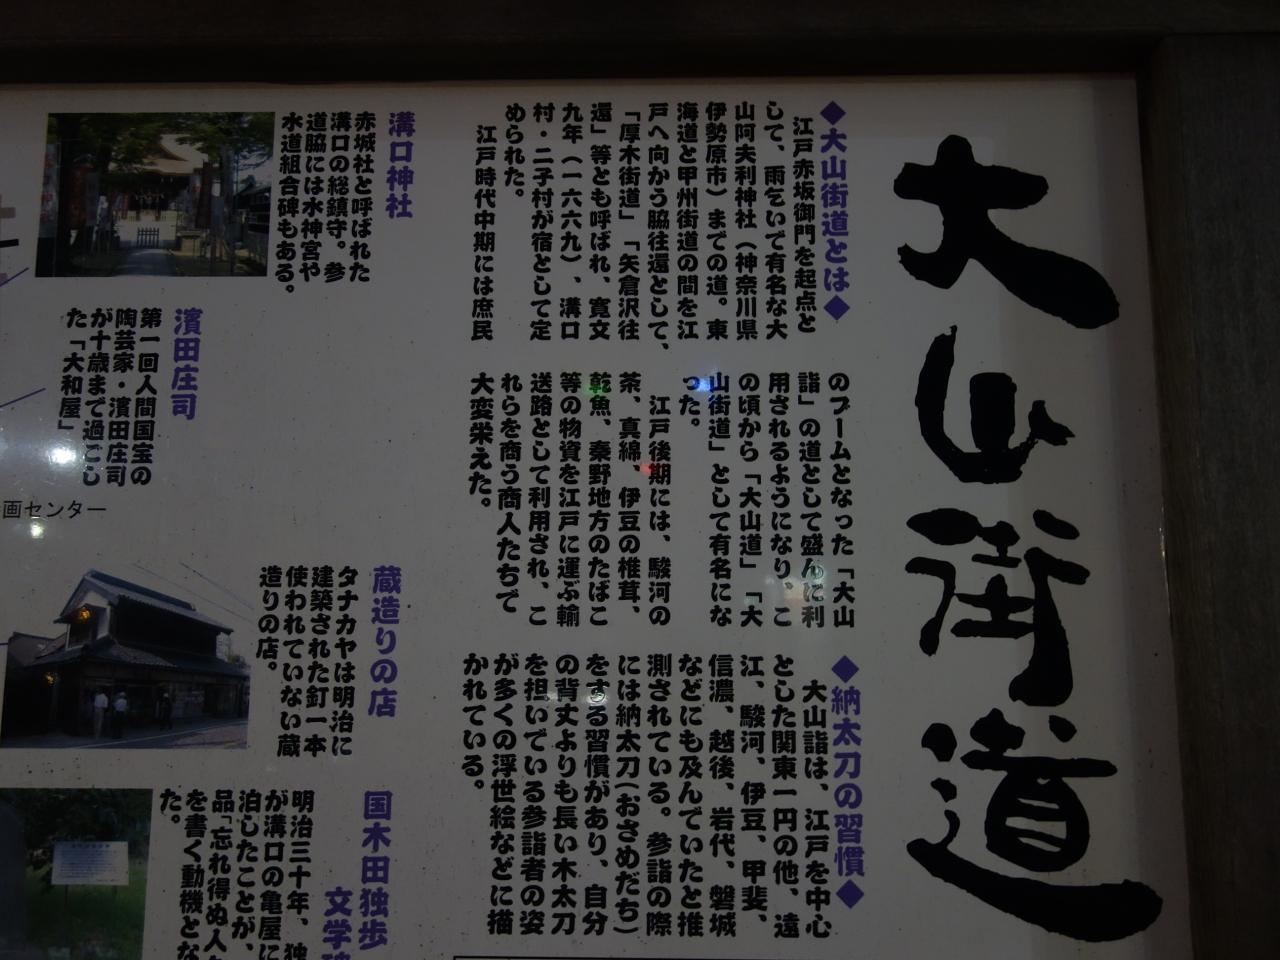 大山街道
◆大山街道とは◆
江戸赤坂御門を起点と
して、雨乞いで有名な大
山阿夫利神社（神奈川県
伊勢原市）までの道。東
海道と甲州街道の間を江
戸へ向かう脇往還として、
「厚木街道」「矢倉沢往
還」等とも呼ばれ、寛文
九年（一六六九）、溝口
村・二子村が宿として定
められた。
江戸時代中期には庶民
のブームとなった「大山
詣」の道として盛んに利
用されるようになり、こ
の頃から「大山道」「大
山街道」として有名にな
った。
江戸後期には、駿河の
茶、真綿、伊豆の椎茸、
乾魚、秦野地方のたばこ
等の物資を江戸に運ぶ輸
送路として利用され、こ
れらを商う商人たちで
大変栄えた。
◆納太刀の習慣◆
大山詣は、江戸を中心
とした関東一円の他、遠
江、駿河、伊豆、甲斐、
信濃、越後、岩代、磐城
などにも及んでいたと推
測されている。参詣の際
には納太刀(おさめだち)
をする習慣があり、自分
の背丈よりも長い木太刀
を担いでいる参詣者の姿
が多くの浮世絵などに描
かれている。
溝口神社
赤城社と呼ばれた
溝口の総鎮守。参
道脇には水神宮や
水道組合碑もある。
濱田庄司
第一回人間国宝の
陶芸家・濱田庄司
が十歳まで過ごし
た「大和屋」
画センター
蔵造りの店
タナカヤは明治に
建築された釘一本
使われていない蔵
造りの店。
国木田独歩
文学碑
明治三十年、独
が溝口の亀屋に
泊したことが、
品「忘れ得ぬ人
を書く動機とな
た。